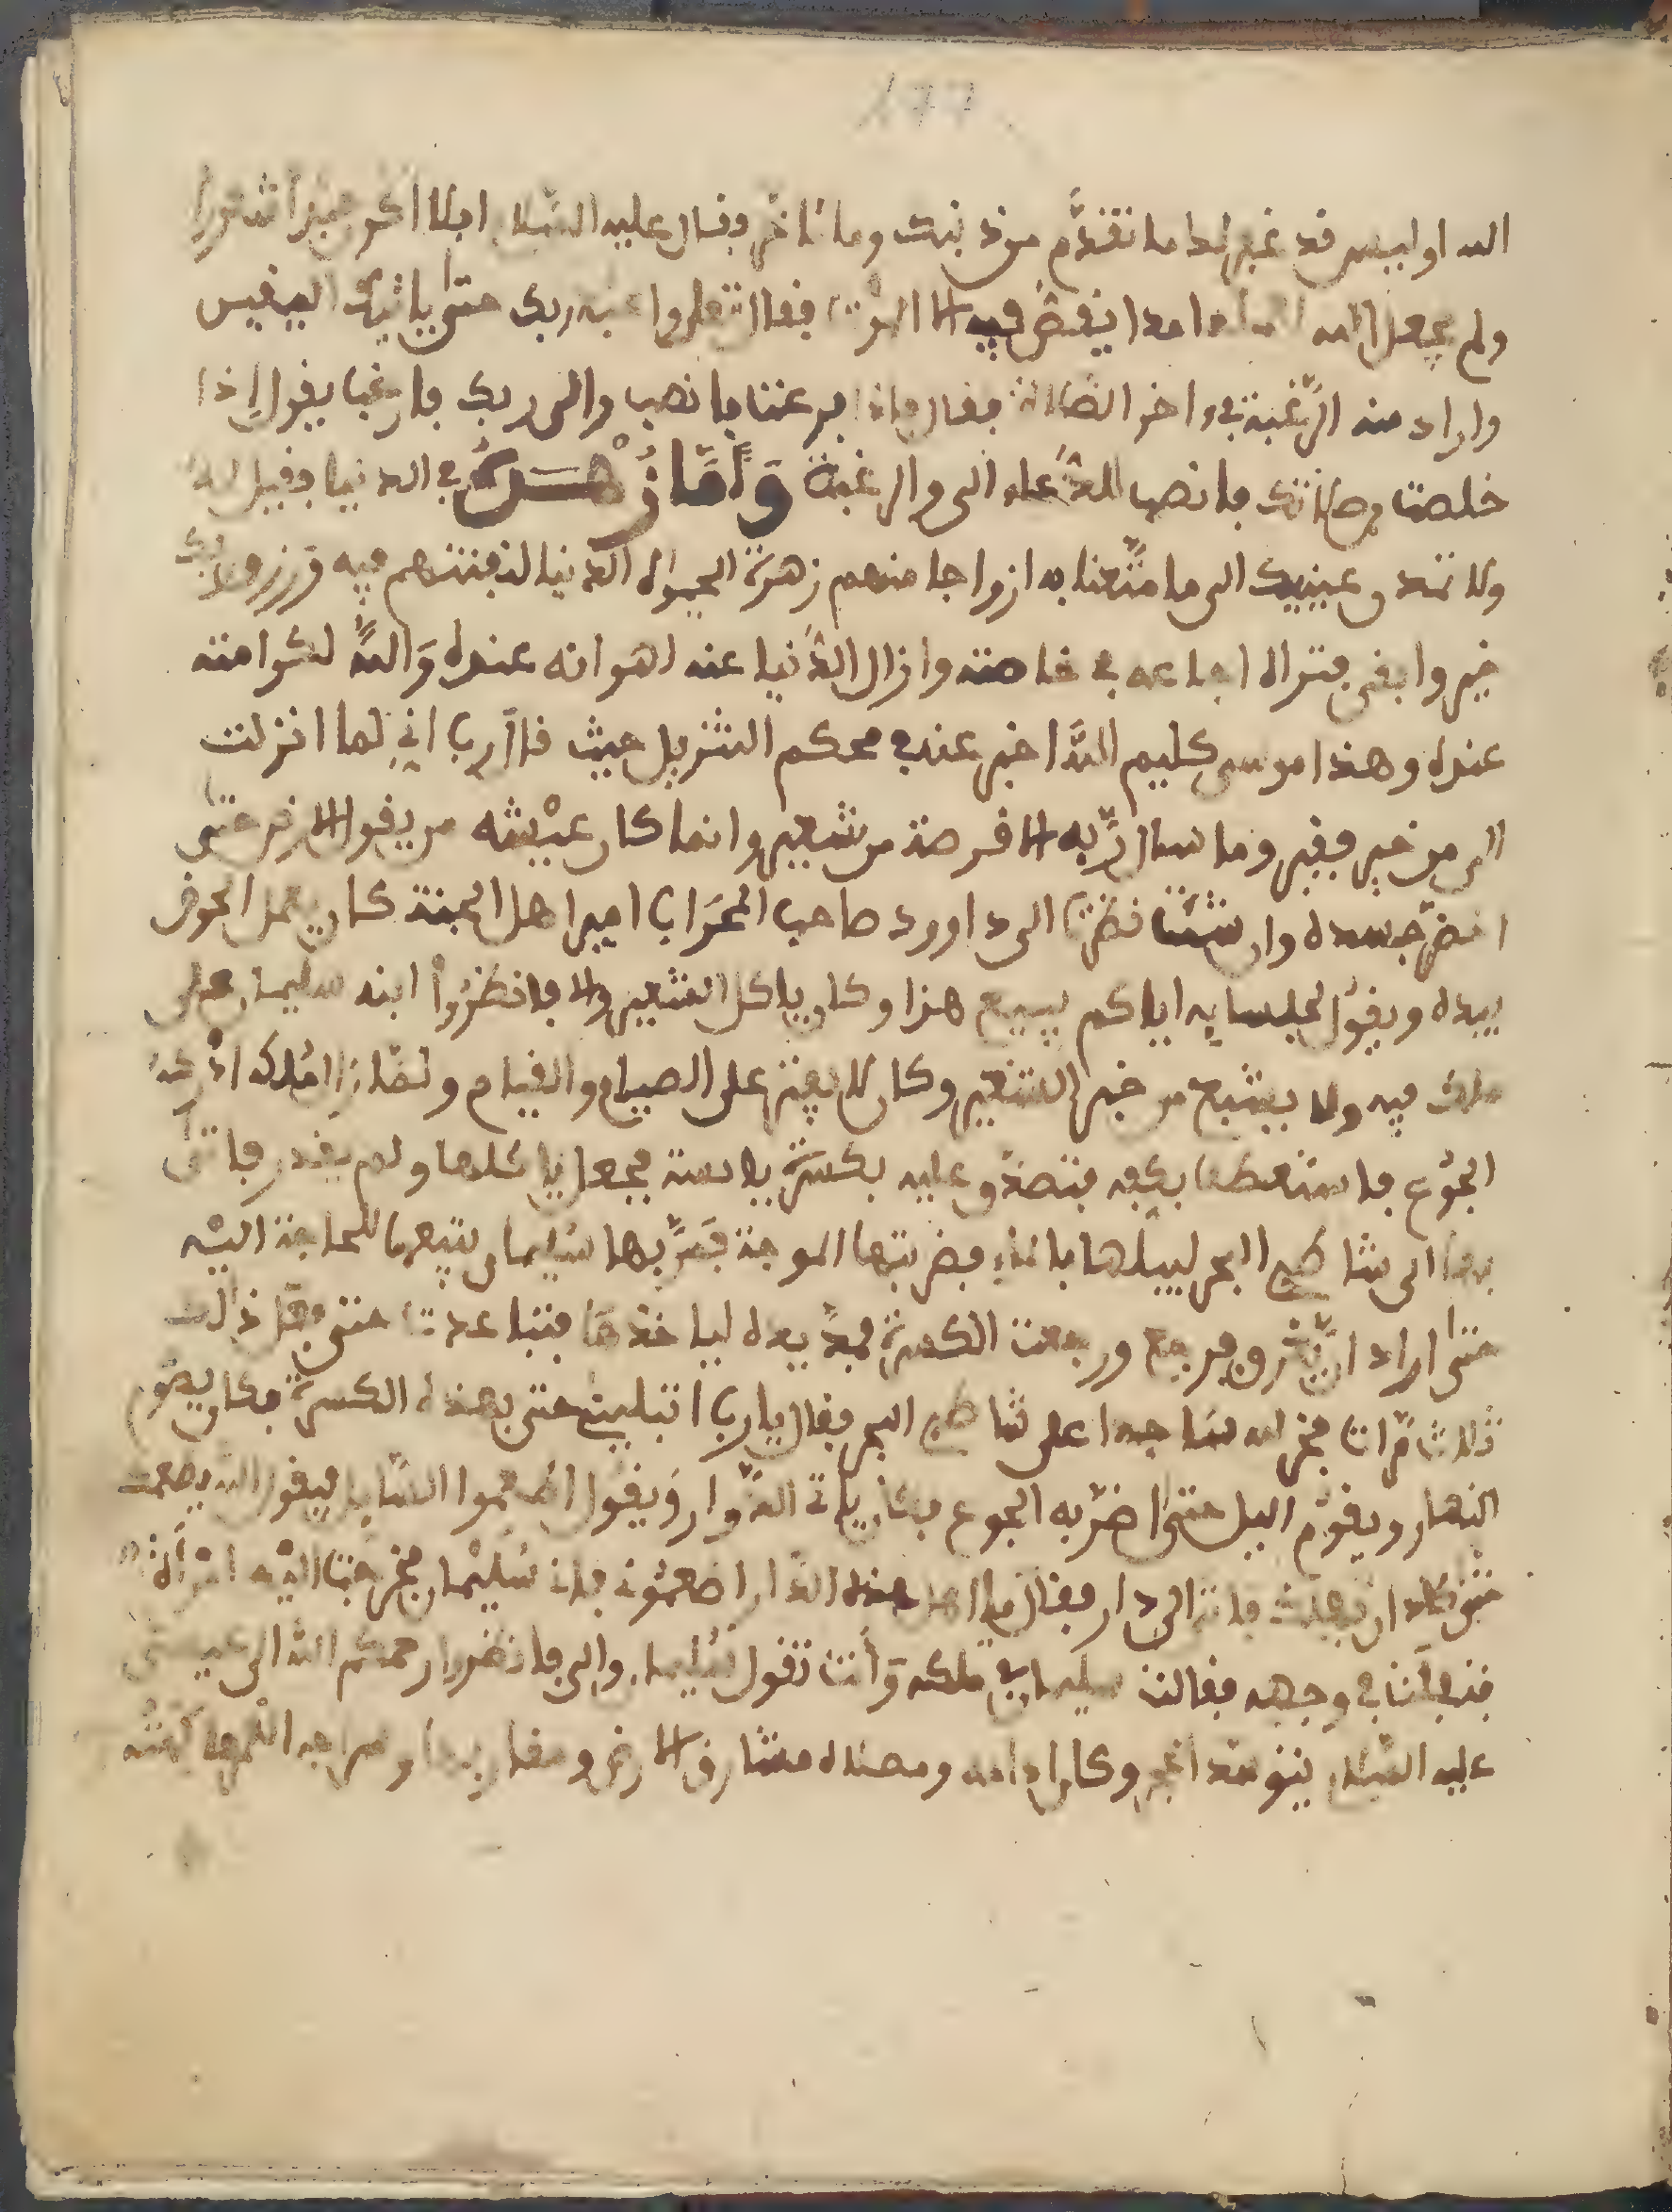 177
الله اوليس قد غفر لك ما تقدم من ذنبك وما تاخر فقال عليه السلام افلا اكون عبدا شكورا
ولم يجعل الله امدا ينقضي فيه الا الموت فقال تعلى واعبد ربك حتى ياتيك اليقين
واراد منه الرغبة في اخر الصلاة فقال فاذا فرغت فانصب والى ربك فارغب يقول اذا
خلصت من صلاتك فانصب للدعاء الي والرغبة وَأَمَّا زُهْدُهُ في الدنيا فقيل له
ولا تمدن عينيك الى ما متعنا به ازواجا منهم زهرة الحيواة الدنيا لنفتنهم فيه ورزق ربك
خير وابقى فتراه اجاعه في خاصته وازال الدنيا عنه اهوانه عنده وَاللَّه لكرامته
عنده وهذا موسى كليم الله اخبر عنه في محكم التنزيل حيث قال رب اني لما انزلت
الي من خير فقير وما سال ربه الا قرصة من شعير وانما كان عيشه من بقول الارض حتى
اخضر جسده وان شئت نظرت الى داوود صاحب المحراب امير اهل الجنة كان يعمل الخوص
بيده ويقول لجلسايه ايكم يبيع هذا وكان ياكل الشعير والا فانظروا ابنه سليمان على
ملك فيه ولا يشبع من خبز الشعير وكان لا يفتر على الصيام والقيام ولما زال ملكه ادركه
الجوع فاستعطا بكفه فتصدق عليه بكسرة يابسة فجعل ياكلها ولم يقدر فاتى
بها الى شاطي البحر ليبلها بالماء فضربتها الموجة فمر بها سليمان يتبعها للحاجة اليه
حتى اراد ان يغرق فرجع ورجعت الكسرة فمد يده لياخذها فتباعدت حتى فعل ذالك
ثلاث مرات فخر لله ساجدا على شاطي البحر فقال يا رب ابتليتني حتى بهذه الكسرة فكان يصوم
النهار ويقوم اليل حتى اضر به الجوع فكان ياتي الدوار ويقول اطعموا السايل فيقول الله يطعمك
حتى كاد ان يهلك فاتى الى دار فقال يا اهل هذه الدار اطعموني فانا سليمان فخرجت اليه امرأة
فتفلت في وجهه فقالت سليمان في ملكه وأنت تقول سليمان والى فانظروا رحمكم الله الى عيسى
عليه السلام يتوسد الحجر وكان ادامه ومصلاه مشارق الارض ومغاربها وسراجه القمر